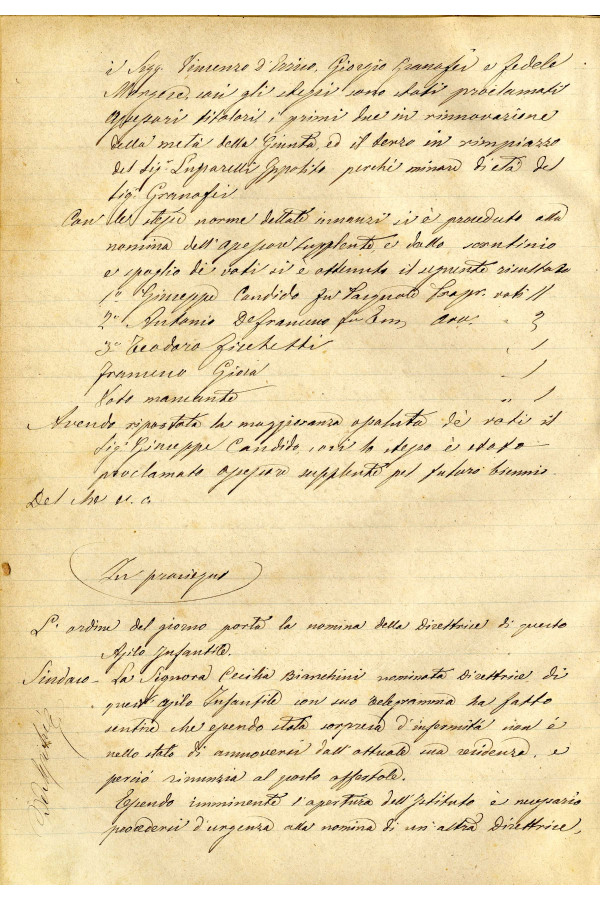 i Sigg. Vincenzo d'Errico, Giorgio Granafei e Fedele
così gli stessi sono stati proclamati
assessori titolari i primi due in rinnovazione
della metà della Giunta, ed il terzo in rimpiazzo
del Sig. Luparelli Ippolito perchè minore d'età del
Sig. Granafei
Con le stesse norme dettate innanzi si è proceduto alla
nomina dell'assessore supplente, e dallo scrutinio
e spoglio di voti si è ottenuto il seguente risultato
1° Giuseppe Candido fu Pasquale Propr. voti 11
2° Antonio Defrancesco fu Em. Avv. " 2
3° Teodoro Fischetti " 1
Francesco Gioia " 1
Voto mancante " 1
Avendo riportata la maggioranza assoluta dè voti il
Sig. Giuseppe Candido, così lo stesso è stato
proclamato assessore supplente pel futuro biennio
Del che v. c.
In prosieguo
L'ordine del giorno porta la nomina della Direttrice di questo
Asilo Infantile.
Sindaco - La Signora Cecilia Bianchini nominata Direttrice di
quest'Asilo Infantile con suo telegramma ha fatto
sentire che essendo stata sorpresa d'infermità non è
nello stato di muoversi dall'attuale sua residenza, e
perciò rinunzia al posto offertole.
Essendo imminente l'apertura dell'Istituto è necessario
procedersi d'urgenza alla nomina di un'altra Direttrice,